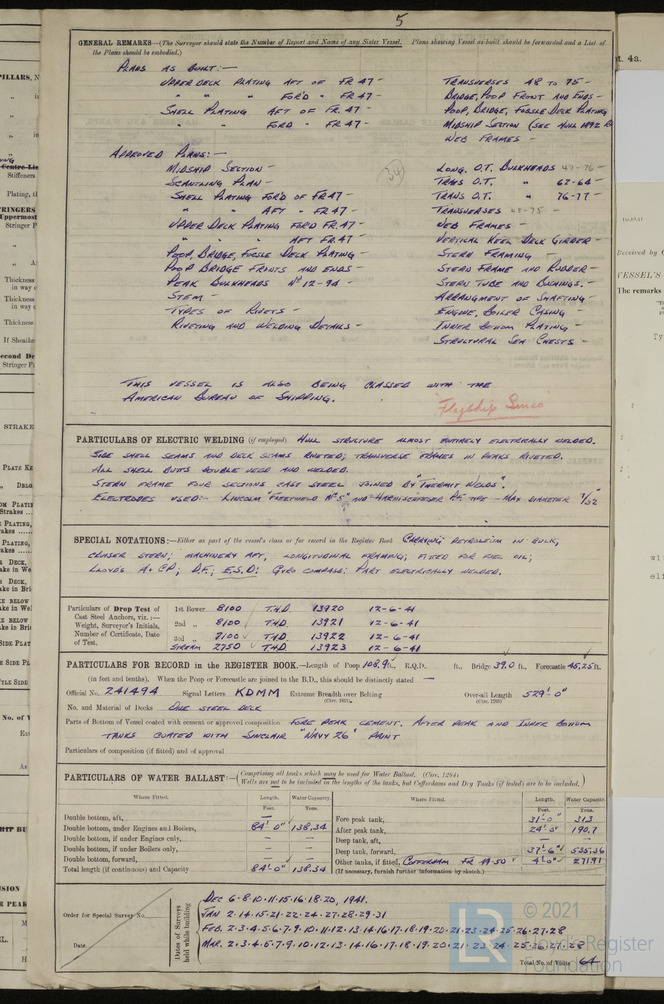 5
GENERAL REMARKS—(The Surveyor should state the Number of Report and Name of any Sister Vessel. Plans shewing Vessel as built should be forwarded and a List of
the Plans should be embodied.)
PLANS AS BUILT:—
UPPER DECK PLATING AFT OF FR 47 — TRANSVERSES 48 TO 75 —
" " " FOR'D " FR 47 — BRIDGE, POOP FRONT AND ENDS —
SHELL PLATING AFT OF FR. 47 — POOP, BRIDGE, FOCSLE DECK PLATING
" " FOR'D " FR 47 — MIDSHIP SECTION (SEE HULL 1892
WEB FRAMES —
APPROVED PLANS:—
MIDSHIP SECTION — LONG. O.T. BULKHEADS 47-76 —
SCANTLING PLAN — TRANS O.T. " 62-64 —
SHELL PLATING FOR'D OF FR 47 — TRANS O.T. " 76-77 —
" " AFT " FR 47 TRANSVERSES 48-75 —
UPPER DECK PLATING FOR'D FR. 47 — WEB FRAMES —
" " " AFT FR. 47 VERTICAL KEEL DECK GIRDER —
POOP, BRIDGE, FOCSLE DECK PLATING — STERN FRAMING —
POOP BRIDGE FRONTS AND ENDS — STERN FRAME AND RUDDER —
PEAK BULKHEADS Nº 12-94 — STERN TUBE AND
STEM — ARRANGMENT OF SHAFTING —
TYPES OF RIVETS — ENGINE, BOILER CASING —
RIVETING AND WELDING DETAILS — INNER BOTTOM PLATING —
STRUCTURAL SEA CHESTS —
(34)
THIS VESSEL IS ALSO BEING CLASSED WITH THE
AMERICAN BUREAU OF SHIPPING.
Flagship Sinco
PARTICULARS OF ELECTRIC WELDING (if employed) HULL STRUCTURE ALMOST ENTIRELY ELECTRICALLY WELDED.
SIDE SHELL SEAMS AND DECK SEAMS RIVETED; TRANSVERSE FRAMES IN PEAKS RIVETED.
ALL SHELL BUTTS DOUBLE VEED AND WELDED.
STERN FRAME FOUR SECTIONS CAST STEEL JOINED BY "THERMIT WELDS".
ELECTRODES USED:— LINCOLN "FLEETWELD Nº 5" AND HARNISCHFEGER TYPE — MAX DIAMETER 7/32
SPECIAL NOTATIONS:—Either as part of the vessel's class or for record in the Register Book CARRYING PETROLEUM IN BULK,
CRUISER STERN; MACHINERY AFT, LONGITUDINAL FRAMING; FITTED FOR FUEL OIL;
LLOYD'S A & CP; D.F.; E.S.D.; GYRO COMPASS: PART ELECTRICALLY WELDED.
Particulars of Drop Test of
Cast Steel Anchors, viz.:—
Weight, Surveyor's Initials,
Number of Certificate, Date
of Test.
1st Bower 8100 T.H.D. 13920 12-6-41
2nd " 8100 T.H.D. 13921 12-6-41
3rd " 7100 T.H.D. 13922 12-6-41
STREAM 2750 T.H.D 13923 12-6-41
PARTICULARS FOR RECORD in the REGISTER BOOK.—Length of Poop 108.9 ft., R.Q.D. ft., Bridge 39.0 ft., Forecastle 45.25 ft.
(in feet and tenths). When the Poop or Forecastle are joined to the B.D., this should be distinctly stated —
Official No. 241494 Signal Letters KDMM Extreme Breadth over Belting Over-all Length 529'-0"
No. and Material of Decks ONE STEEL DECK
Parts of Bottom of Vessel coated with cement or approved composition FORE PEAK CEMENT. AFTER PEAK AND INNER BOTTOM
TANKS COATED WITH SINCLAIR "NAVY 26" PAINT
Particulars of composition (if fitted) and of approval
PARTICULARS OF WATER BALLAST:—(Comprising all tanks which may be used for Water Ballast. (Circ. 1284)
Wells are not to be included in the lengths of the tanks, but Cofferdams and Dry Tanks (if tested) are to be included.)
Where Fitted. Length. Water Capacity. Where Fitted. Length. Water Capacity.
Feet. Tons. Feet. Tons.
Double bottom, aft, — Fore peak tank, 31'-0" 313
Double bottom, under Engines and Boilers, 84'-0" 138.34 After peak tank, 24'-0" 190.7
Double bottom, if under Engines only, — — Deep tank, aft, — —
Double bottom, if under Boilers only, — — Deep tank, forward, 37'-6" 535.36
Double bottom, forward, — — Other tanks, if fitted, COFFERDAM FR 49-50 4'-0" 271.91
Total length (if continuous) and Capacity 84'-0" 138.34 (If necessary, furnish further information by sketch.)
Order for Special Survey No.
Date
Dates of Surveys
held while building
DEC 6·8·10·11·15·16·18·20, 1941.
JAN 2·14·15·21·22·24·27·28·29·31
FEB. 2·3·4·5·6·7·9·10·11·12·13·14·16·17·18·19·20·21·23·24·25·26·27·28
MAR. 2·3·4·5·6·7·9·10·12·13·14·16·17·18·19·20·21·23·24·25·26·27·28
Total No. of Visits 64
© 2021
Lloyd's Register
Foundation
LR
t. 4a.
Received by
VESSEL'S
The remarks